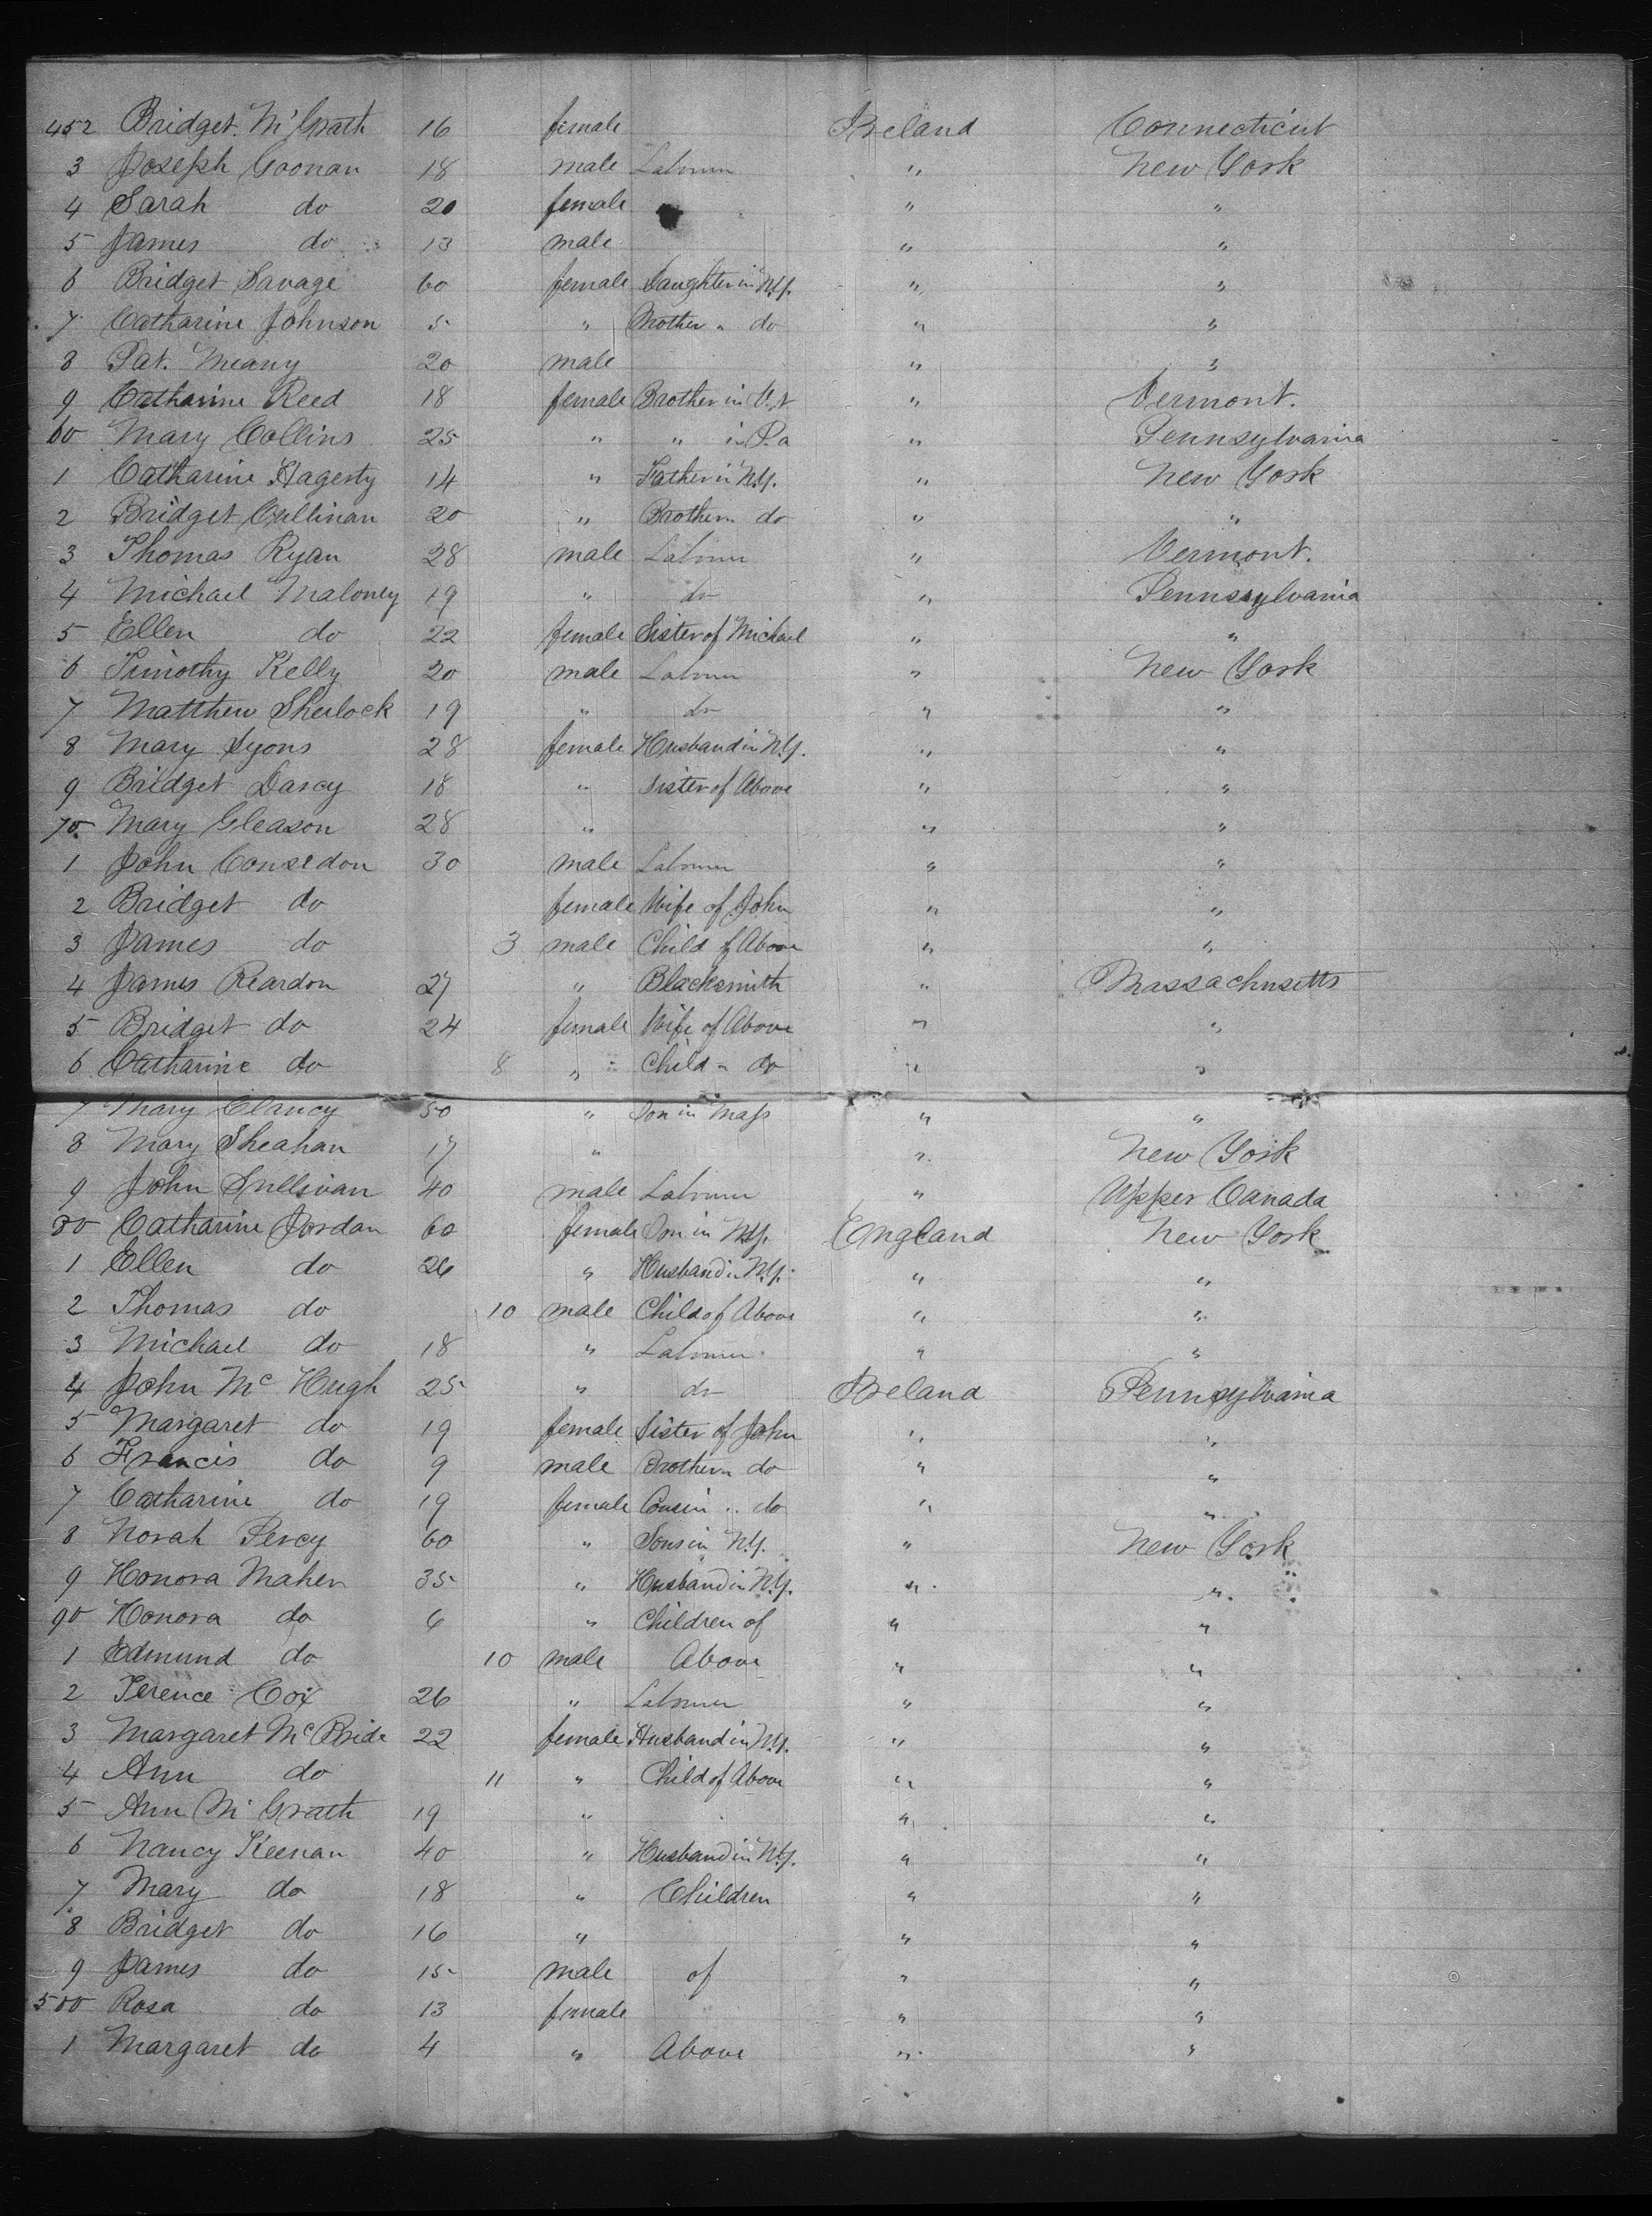 452 Bridget McGrath 16 female Ireland Connecticut
3 Joseph Goonan 18 male Labourer " New York
4 Sarah do 20 female " "
5 James do 13 male " "
6 Bridget Savage 60 female Daughter in N.Y. " "
7 Catharine Johnson 5 " Mother " do " "
8 Pat. Meany 20 male " "
9 Catharine Reed 18 female Brother in V.t " Vermont.
60 Mary Collins 25 " " in Pa " Pennsylvania
1 Catharine Hagerty 14 " Father in N.Y. " New York
2 Bridget Cullinan 20 " Brother " do " "
3 Thomas Ryan 28 male Labourer " Vermont.
4 Michael Maloney 19 " do " Pennsylvania
5 Ellen do 22 female Sister of Michael " "
6 Timothy Kelly 20 male Labourer " New York
7 Matthew Sherlock 19 " do " "
8 Mary Lyons 28 female Husband in N.Y. " "
9 Bridget Darcy 18 " Sister of Above " "
70 Mary Gleason 28 " " "
1 John Consedon 30 male Labourer " "
2 Bridget do female Wife of John " "
3 James do 3 male Child of Above " "
4 James Reardon 27 " Blacksmith " Massachusetts
5 Bridget do 24 female Wife of Above " "
6 Catharine do 8 " Child " do " "
7 Mary Clancy 50 " Son in Mass " "
8 Mary Sheahan 17 " " New York
9 John Sullivan 40 male Labourer " Upper Canada
80 Catharine Jordan 60 female Son in N.Y. England New York
1 Ellen do 26 " Husband in N.Y. " "
2 Thomas do 10 male Child of Above " "
3 Michael do 18 " Labourer " "
4 John Mc Hugh 25 " do Ireland Pennsylvania
5 Margaret do 19 female Sister of John " "
6 Francis do 9 male Brother " do " "
7 Catharine do 19 female Cousin " do " "
8 Norah Percy 60 " Sons in N.Y. " New York
9 Honora Maher 35 " Husband in N.Y. " "
90 Honora do 6 " Children of " "
1 Edmund do 10 male Above " "
2 Terence Cox 26 " Labourer " "
3 Margaret McBride 22 female Husband in N.Y. " "
4 Ann do 11 " Child of Above " "
5 Ann McGrath 19 " " "
6 Nancy Keenan 40 " Husband in N.Y. " "
7 Mary do 18 " Children " "
8 Bridget do 16 " " "
9 James do 15 male of " "
500 Rosa do 13 female " "
1 Margaret do 4 " Above " "